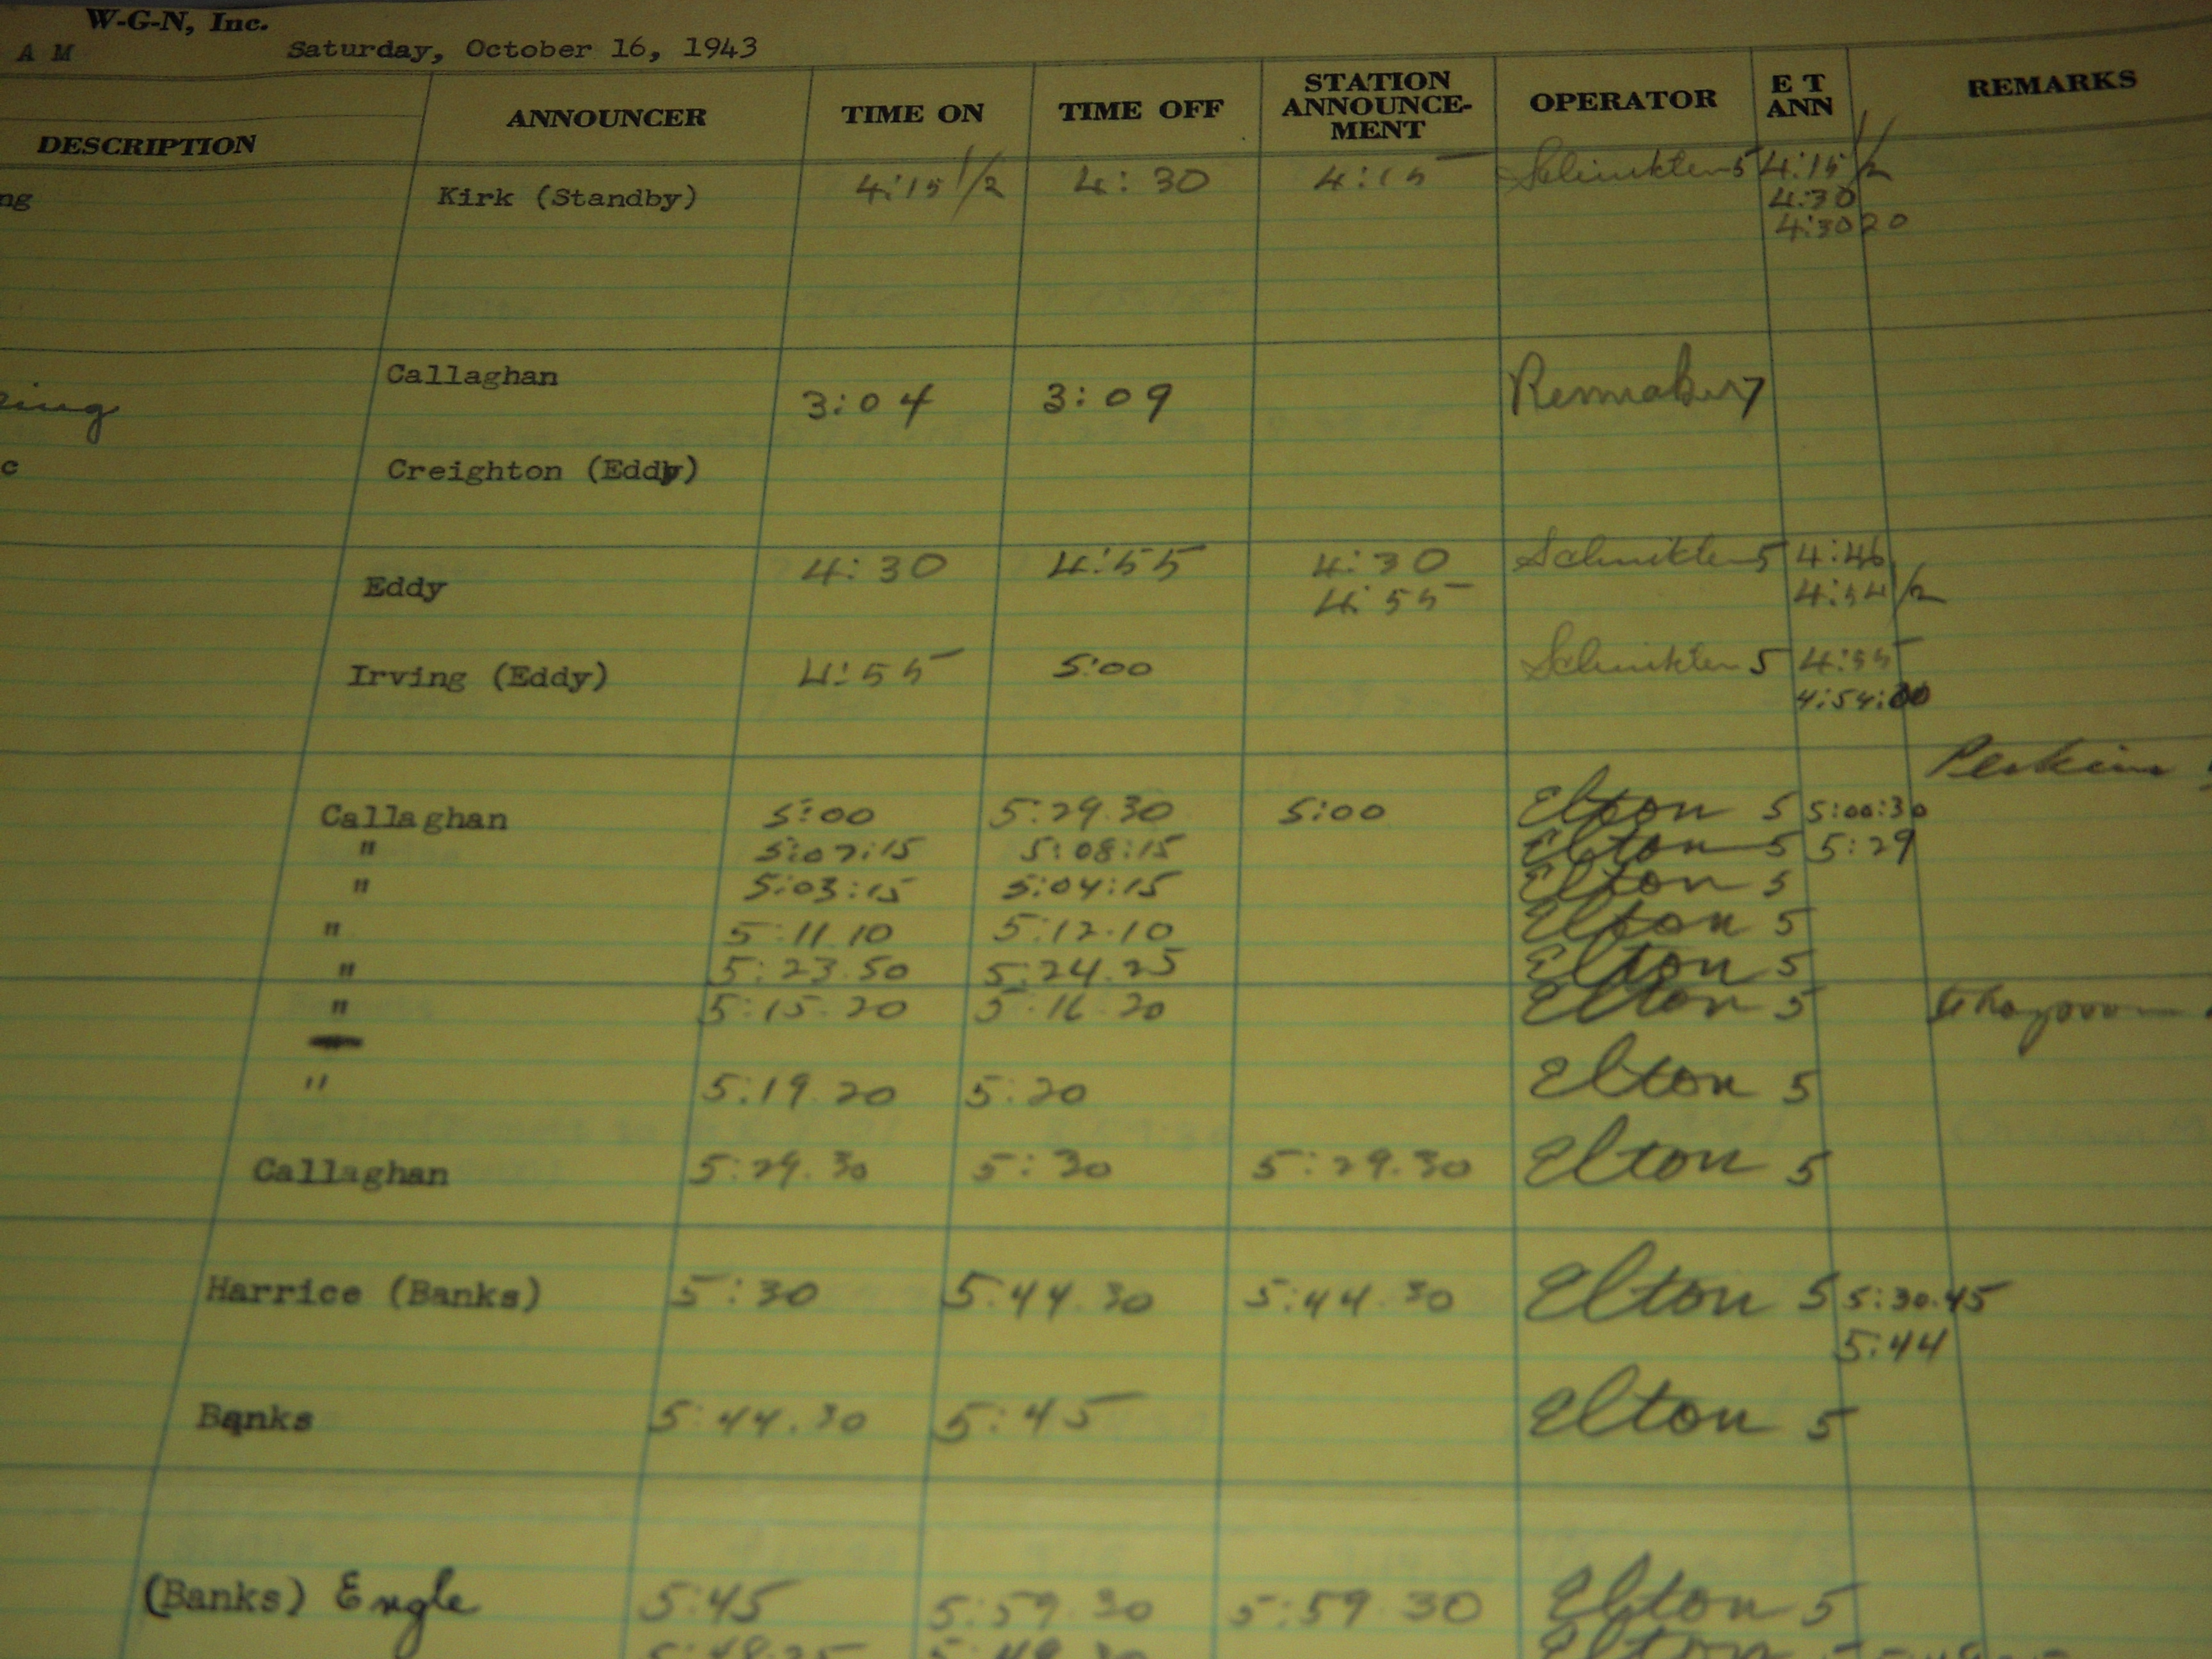 W-G-N, Inc.
A M Saturday, October 16, 1943
DESCRIPTION ANNOUNCER TIME ON TIME OFF STATION ANNOUNCE-MENT OPERATOR E T ANN REMARKS
ng Kirk (Standby) 4:15 1/2 4:30 4:15 5 4:15 1/2
4:30
4:30 20
Callaghan 3:04 3:09 7
c Creighton (Eddy)
Eddy 4:30 4:55 4:30 5 4:46
4:55 4:54 1/2
Irving (Eddy) 4:55 5:00 5 4:55
4:54:00
Perkins
Callaghan 5:00 5:29.30 5:00 Elton 5 5:00:30
" 5:07:15 5:08:15 Elton 5 5:29
" 5:03:15 5:04:15 Elton 5
" 5:11.10 5:12.10 Elton 5
" 5:23.50 5:24.25 Elton 5
" 5:15.20 5:16.20 Elton 5
" 5:19.20 5:20 Elton 5
Callaghan 5:29.30 5:30 5:29.30 Elton 5
Harrice (Banks) 5:30 5:44.30 5:44.30 Elton 5 5:30.45
5:44
Banks 5:44.30 5:45 Elton 5
(Banks) Engle 5:45 5:59.30 5:59.30 Elton 5
Elton